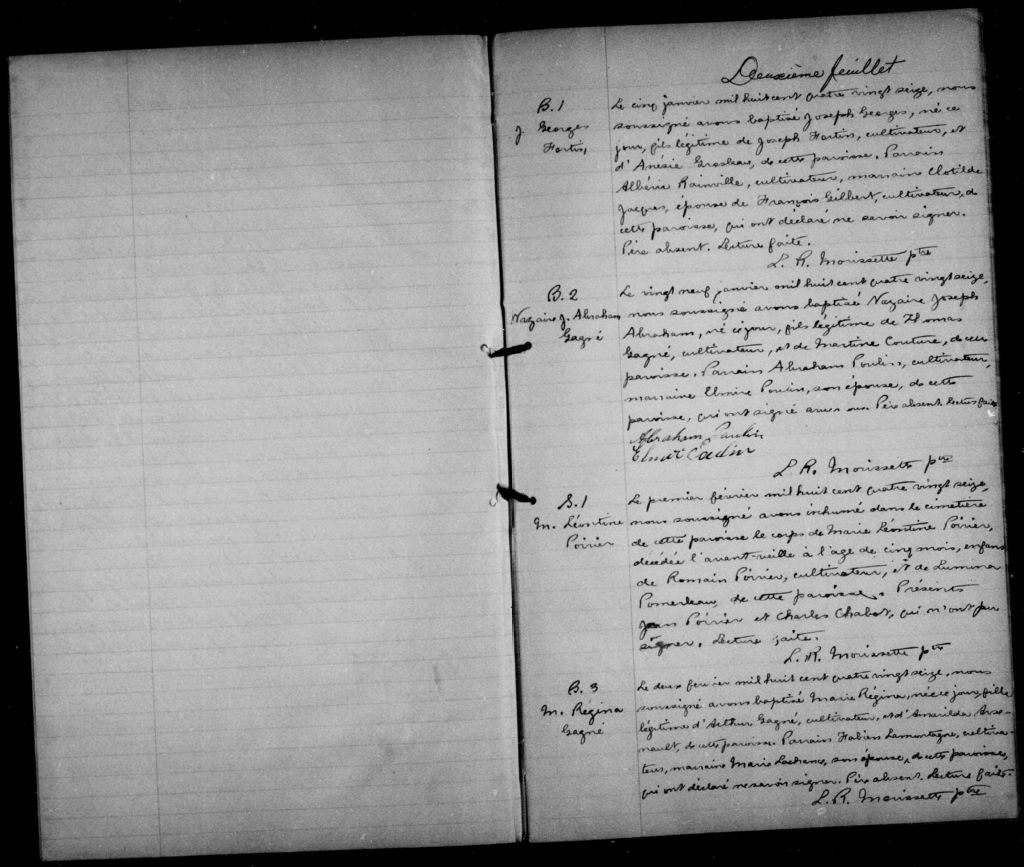 Deuxième feuillet
B. 1
J. Georges
Fortin,
Le cinq janvier mil huit cent quatre vingt seize, nous
soussigné avons baptisé Joseph Georges, né ce
jour, fils légitime de Joseph Fortin, cultivateur, et
d'Anésie Grosleau, de cette paroisse. Parrain
Albénie Rainville, cultivateur, marraine Clotilde
Jacques, épouse de François Gilbert, cultivateur, de
cette paroisse, qui ont déclaré ne savoir signer.
Père absent. Lecture faite.
L. R. Morissette ptre
B. 2
Nazaire J. Abraham
Gagné
Le vingt neuf janvier mil huit cent quatre vingt seize,
nous soussigné avons baptisé Nazaire Joseph
Abraham, né ce jour, fils légitime de Thomas
Gagné, cultivateur, et de Martine Couture, de cette
paroisse. Parrain Abraham Poulin, cultivateur,
marraine Elmire Poulin, son épouse, de cette
paroisse, qui ont signé avec nous. Père absent. Lecture faite
Abraham Poulin
L. R. Morissette ptre
S. 1
M. Léontine
Poirier
Le premier février mil huit cent quatre vingt seize,
nous soussigné avons inhumé dans le cimetière
de cette paroisse le corps de Marie Léontine Poirier,
décédée l'avant-veille à l'age de cinq mois, enfant
de Romain Poirier, cultivateur, et de Lumina
Pomerleau, de cette paroisse. Présents
Jean Poirier et Charles Chabot, qui n'ont pu
signer. Lecture faite.
L. R. Morissette ptre
B. 3
M. Régina
Gagné
Le deux février mil huit cent quatre vingt seize, nous
soussigné avons baptisé Marie Régina, née ce jour, fille
légitime d'Arthur Gagné, cultivateur, et d'Amarilda Arse-
nault, de cette paroisse. Parrain Fabien Lamontagne, cultiva-
teur, marraine Marie Lachance, son épouse, de cette paroisse,
qui ont déclaré ne savoir signer. Père absent. Lecture faite.
L. R. Morissette ptre